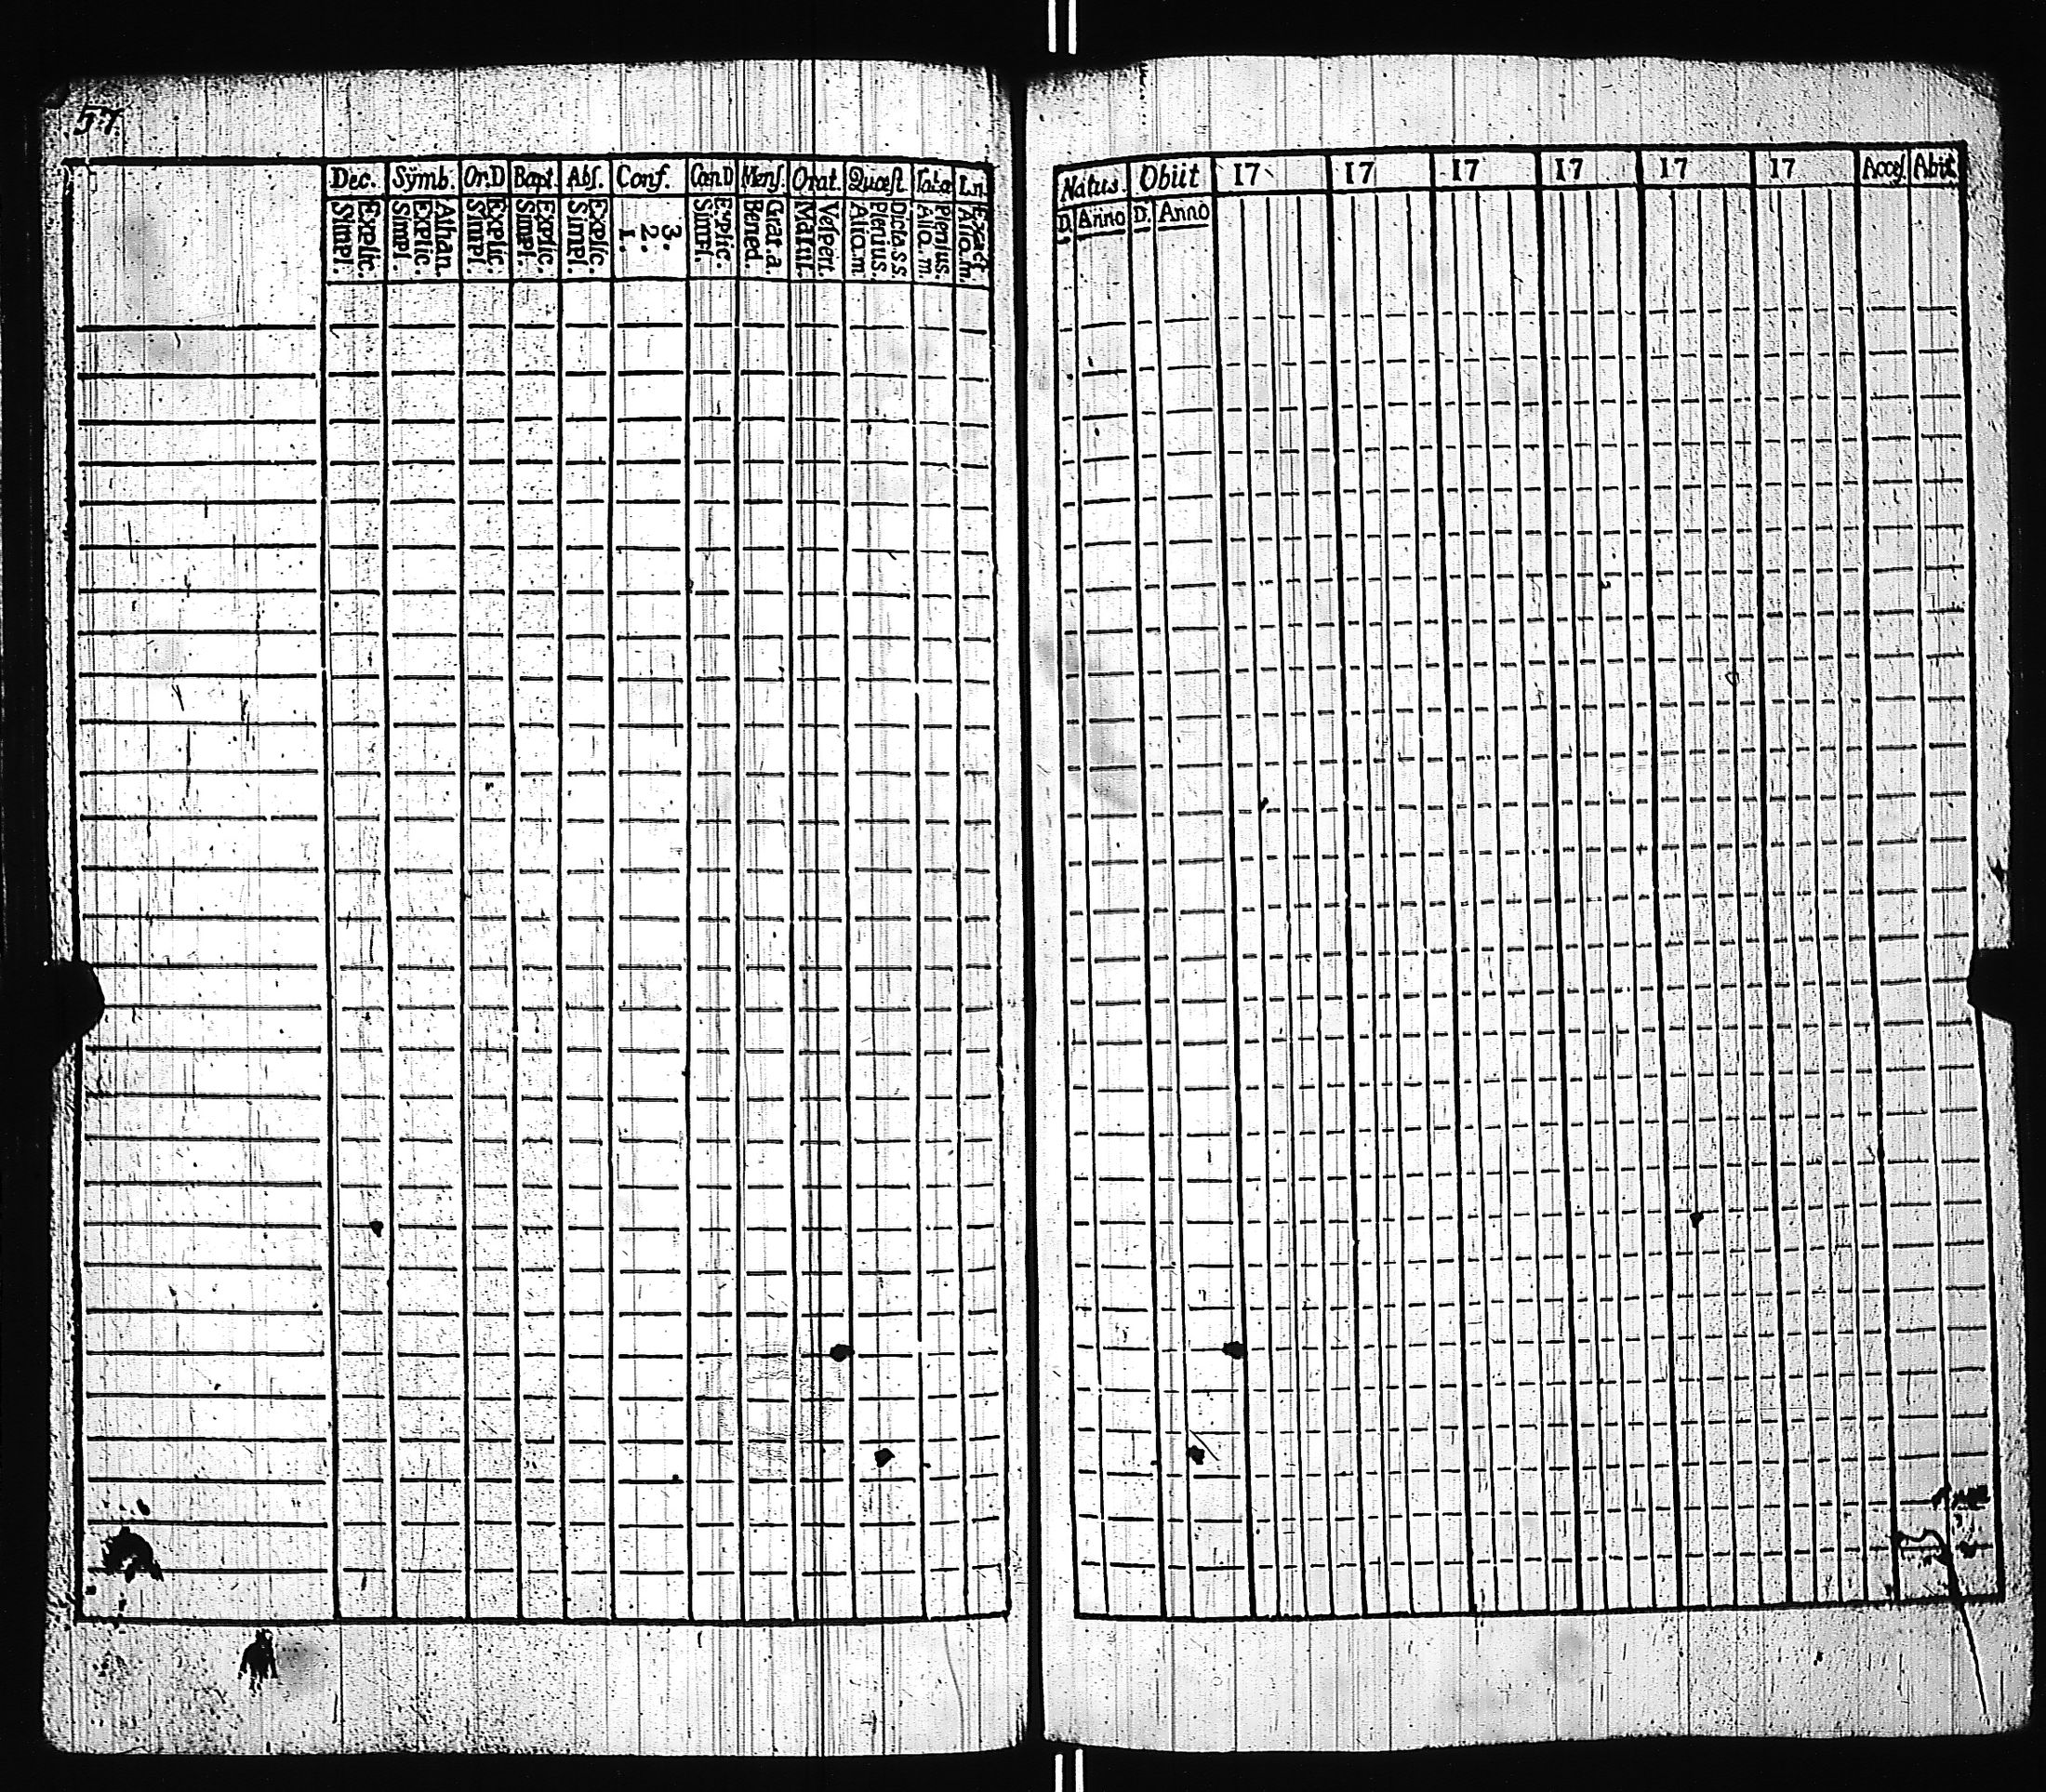 57
Dec. Sÿmb. Or.D Bapt. Abſ. Conf. Cœn.D Menſ. Orat. Quæſt.
Simpl. Explic. Simpl. Explic. Athan. Simpl. Explic. Simpl. Explic. Simpl. Explic. 1. 2. 3. Simpl. Explic. Bened. Grat.a. Matut. Veſpert. Alia.m. Plenius. Dicta.s.s. Alia.m. Plenius. Alia.m. Exact.
Natus. Obiit 17 17 17 17 17 17 Acceſ. Abiit
D. Anno D. Anno